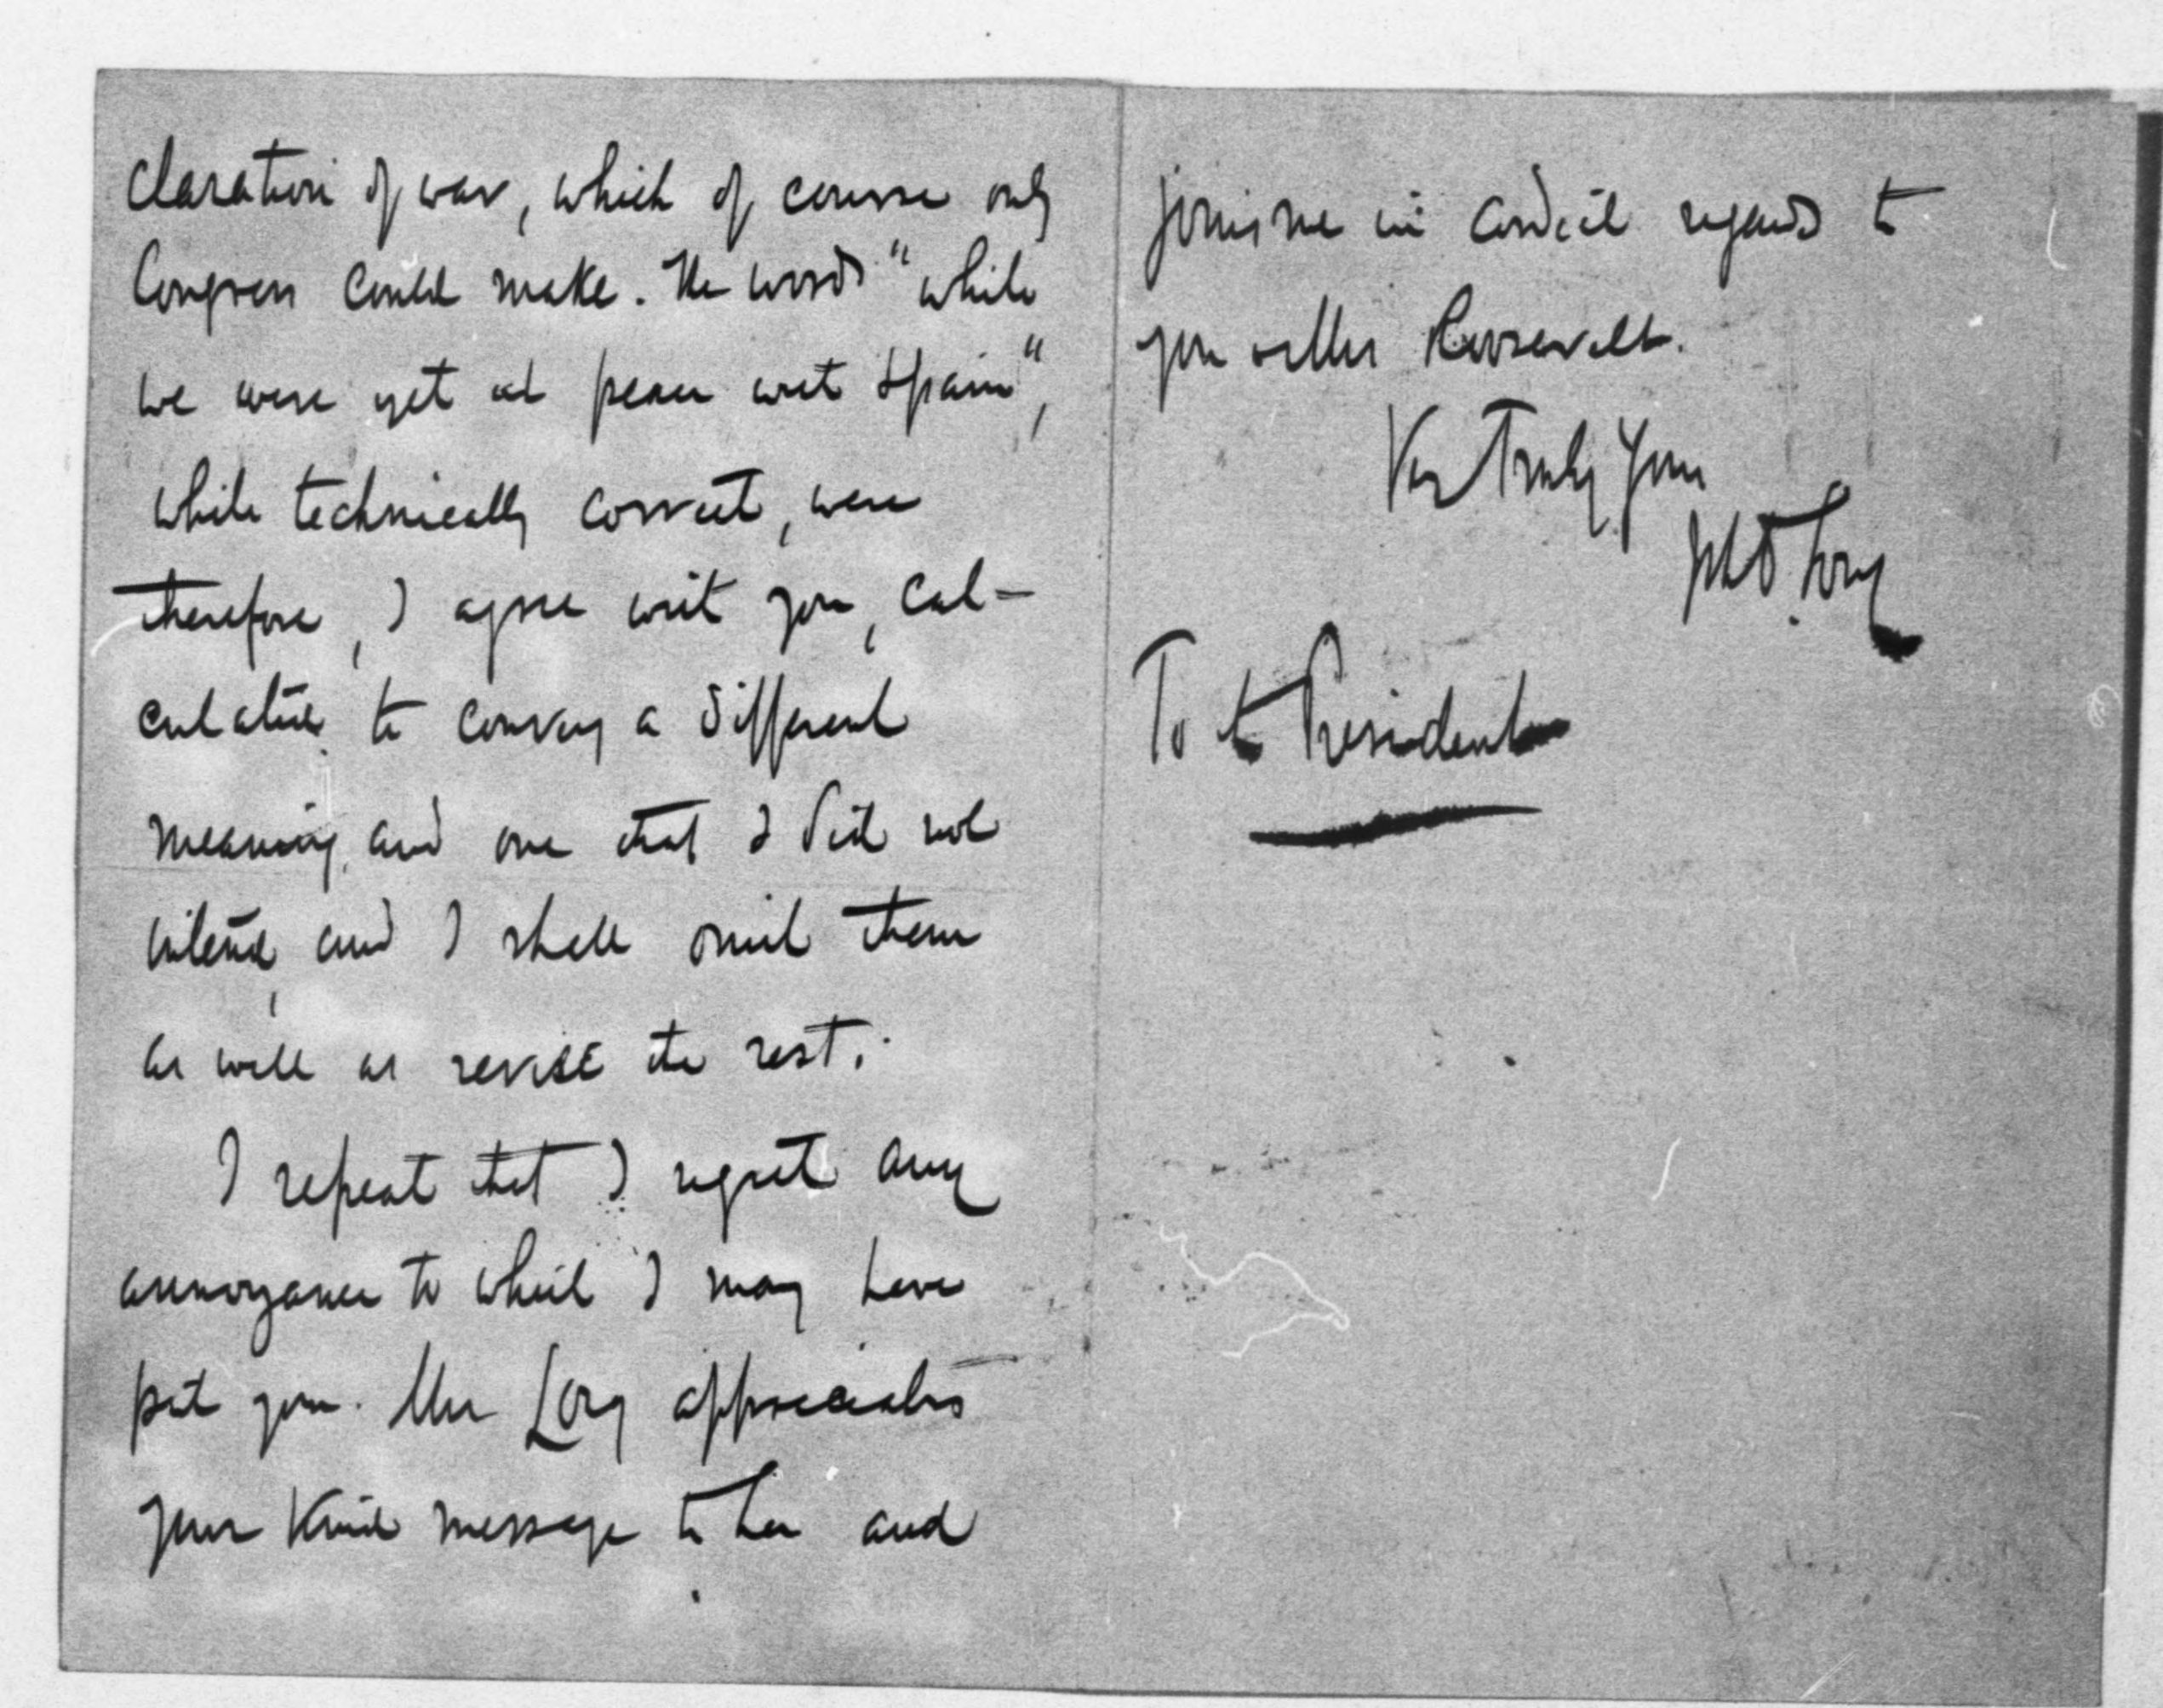 claration of war, which of course only
Congress could make. The words "while
we were yet at peace with Spain",
while technically correct, were
therefore, I agree with you, cal-
culated to convey a different
meaning, and one that I did not
intend, and I shall omit them
as well as revise the rest.
I repeat that I regret any
annoyance to which I may have
put you. Mrs Long appreciates
your kind message to her and
joins me in cordial regards to
you & Mrs Roosevelt.
Very Truly Yours
J D Long
To the President